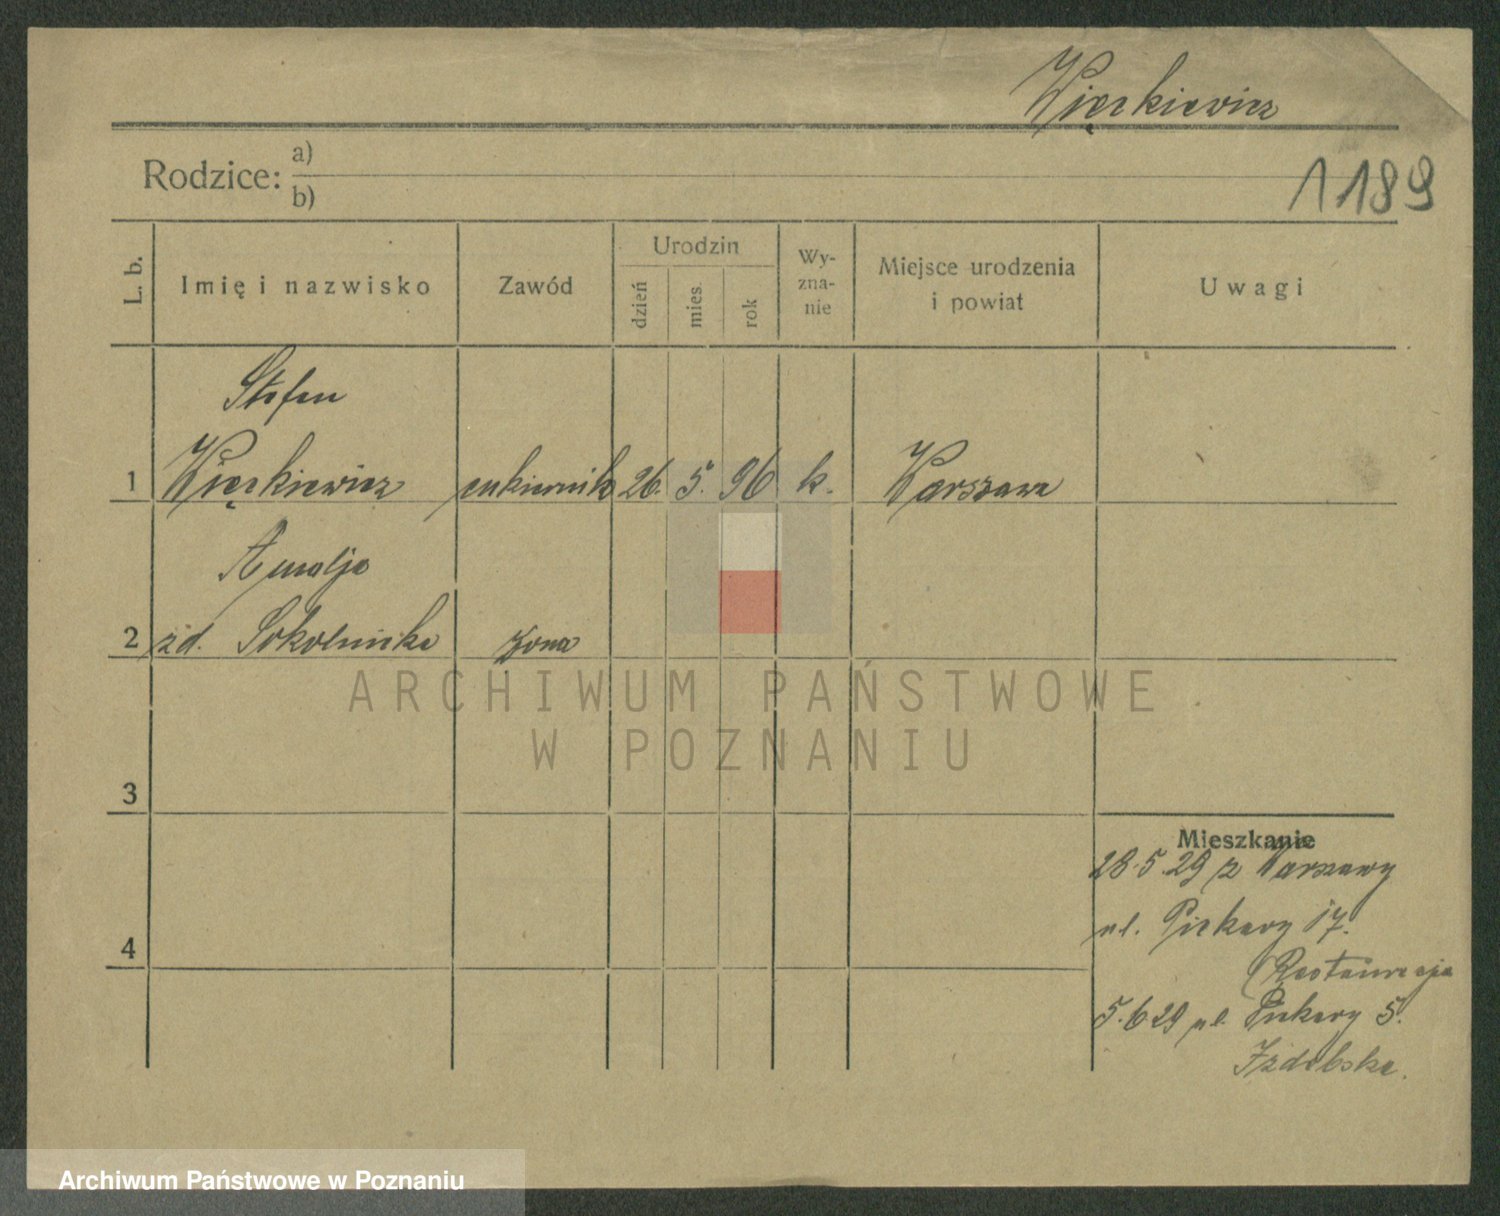 Więckiewicz
Rodzice: a)
b)
1189
L. b.
Imię i nazwisko
Zawód
Urodzin
dzień
mies.
rok
Wy-
zna-
nie
Miejsce urodzenia
i powiat
Uwagi
Stefan
1 Więckiewicz cukiernik 26. 5. 96 k. Warszawa
Amalja
2 zd. Sokolnicka żona
ARCHIWUM PAŃSTWOWE
W POZNANIU
3
4
Mieszkanie
28.5.29 z Warszawy
ul. Piekary 17.
Restauracja
5.6 29 ul. Piekary 5.
Izdebska.
Archiwum Państwowe w Poznaniu